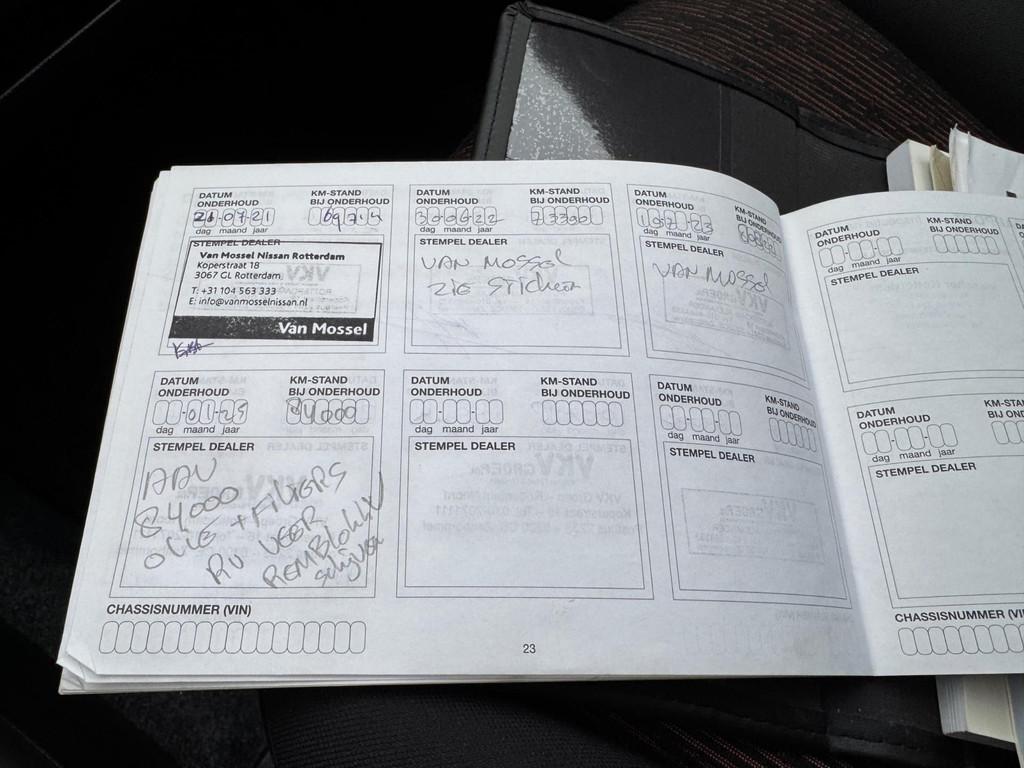 DATUM ONDERHOUD
KM-STAND BIJ ONDERHOUD
21-07-21
69714
dag maand jaar
STEMPEL DEALER
Van Mossel Nissan Rotterdam
Koperstraat 18
3067 GL Rotterdam
T: +31 104 563 333
E: info@vanmosselnissan.nl
Van Mossel
DATUM ONDERHOUD
KM-STAND BIJ ONDERHOUD
300622
dag maand jaar
STEMPEL DEALER
VAN MOSSEL
ZIE STICKER
DATUM ONDERHOUD
KM-STAND BIJ ONDERHOUD
dag maand jaar
STEMPEL DEALER
VAN MOSSEL
DATUM ONDERHOUD
KM-STAND BIJ ONDERHOUD
dag maand jaar
STEMPEL DEALER
DATUM ONDERHOUD
KM-STAND BIJ ONDERHOUD
84000
dag maand jaar
STEMPEL DEALER
84000
OLIE + FILTERS
RV VEER
REMBLOKKEN
schijven
DATUM ONDERHOUD
KM-STAND BIJ ONDERHOUD
dag maand jaar
STEMPEL DEALER
DATUM ONDERHOUD
KM-STAND BIJ ONDERHOUD
dag maand jaar
STEMPEL DEALER
DATUM ONDERHOUD
KM-STAND
dag maand jaar
STEMPEL DEALER
CHASSISNUMMER (VIN)
23
CHASSISNUMMER